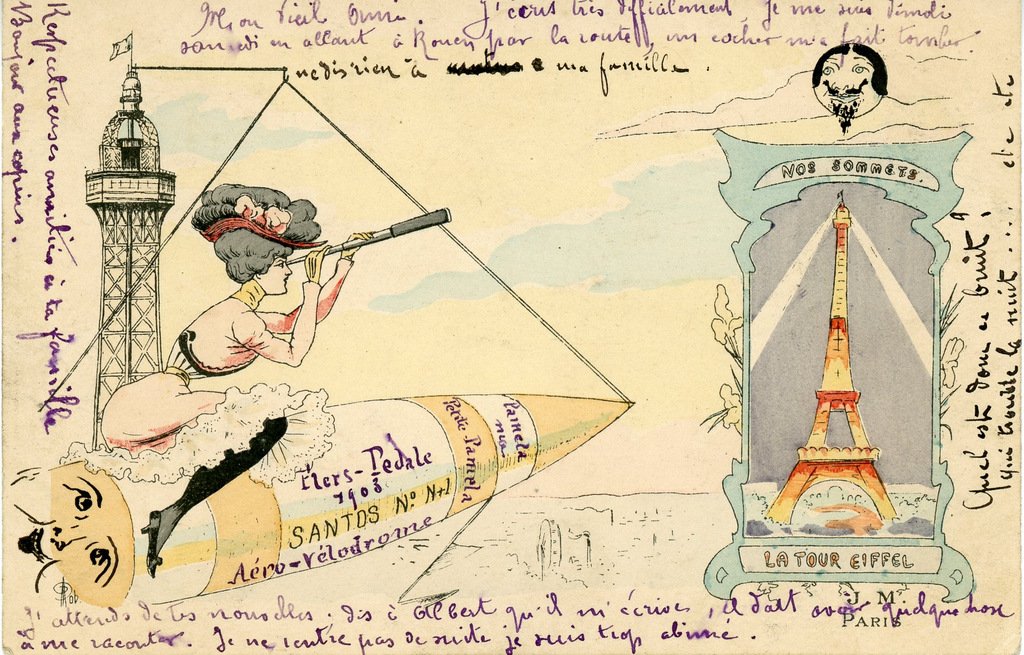 Mon Vieil Ami. J'écris très difficilement. Je me suis démoli
samedi en allant à Rouen par la route, un cocher m'a fait tomber.
ne dis rien à ma famille.
Respectueuses amitiés à ta famille
Bonjour aux copins.
NOS SOMMETS.
Flers-Pédale
1903
SANTOS No. N+1
Aéro-Vélodrome
Petite Pamela
Pamela
LA TOUR EIFFEL
J M
PARIS
Quel est donc ce bruit,
qui trouble la nuit.... etc etc
J'attends de tes nouvelles. dis à Albert qu'il m'écrive, il doit avoir quelque chose
à me raconter. Je ne rentre pas de suite je suis trop abimé.